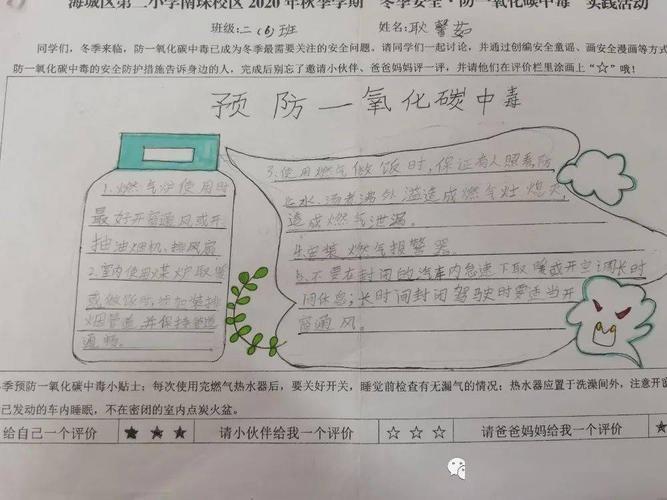 海城区第二小学南珠校区2020年秋季学期“冬季安全·防一氧化碳中毒”实践活动
班级:二(6)班 姓名:耿馨茹
同学们，冬季来临，防一氧化碳中毒已成为冬季最需要关注的安全问题。请同学们一起讨论，并通过创编安全童谣、画安全漫画等方式
防一氧化碳中毒的安全防护措施告诉身边的人，完成后别忘了邀请小伙伴、爸爸妈妈评一评，并请他们在评价栏里涂画上“☆”哦!
预防一氧化碳中毒
1.燃气炉使用时
最好开窗通风或开
抽油烟机、排风扇
2.室内使用煤炉取暖
或做饭时应加装排
烟管道,并保持管道
通畅。
3.使用燃气做饭时,保证有人照看防
止水、汤煮沸外溢造成燃气灶熄灭,
造成燃气泄漏。
4.安装燃气报警器。
5.不要在封闭的汽车内怠速下取暖或开空调长时
间休息;长时间封闭驾驶时要适当开
窗通风。
季预防一氧化碳中毒小贴士:每次使用完燃气热水器后，要关好开关，睡觉前检查有无漏气的情况;热水器应置于洗澡间外，注意开窗
已发动的车内睡眠，不在密闭的室内点炭火盆。
给自己一个评价 ★ ★ ★ 请小伙伴给我一个评价 ☆ ☆ ☆ 请爸爸妈妈给我一个评价 ☆